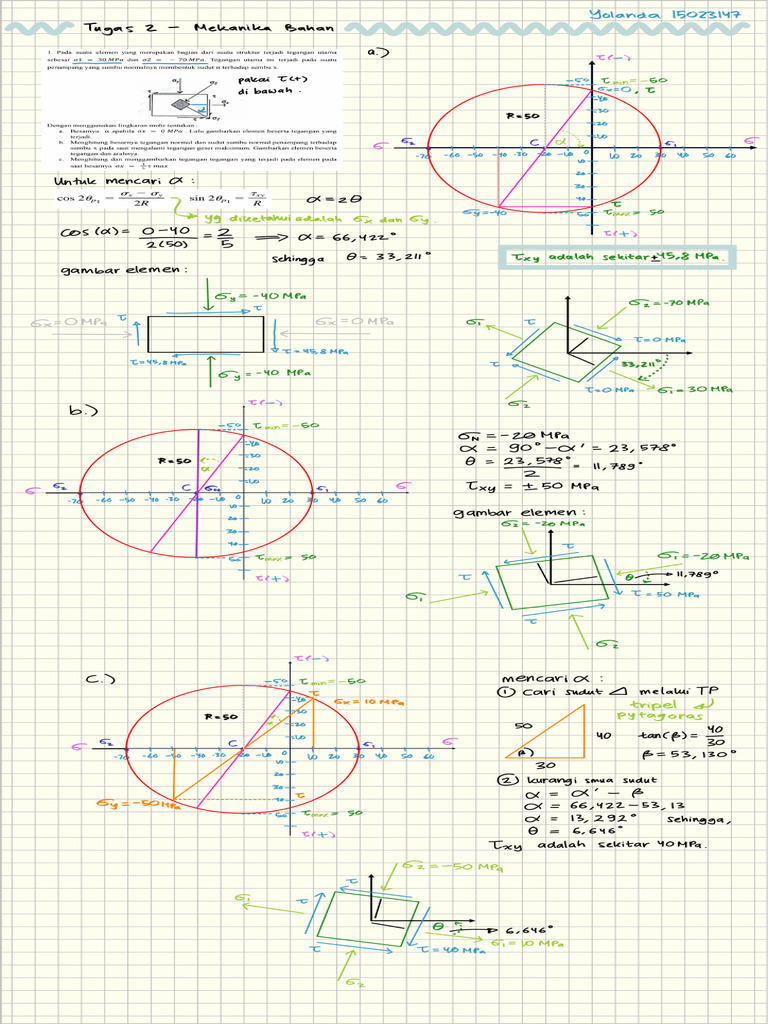 Yolanda 15023147
Tugas 2 - Mekanika Bahan
1. Pada suatu elemen yang merupakan bagian dari suatu struktur terjadi tegangan utama
sebesar σ1 = 30 MPa dan σ2 = - 70 MPa. Tegangan utama ini terjadi pada suatu
penampang yang sumbu normalnya membentuk sudut α terhadap sumbu x.
pakai τ(+)
di bawah.
Dengan menggunakan lingkaran mohr tentukan :
a. Besarnya α apabila σx = 0 MPa . Lalu gambarkan elemen beserta tegangan yang
terjadi.
b. Menghitung besarnya tegangan normal dan sudut sumbu normal penampang terhadap
sumbu x pada saat mengalami tegangan geser maksimum. Gambarkan elemen beserta
tegangan dan arahnya.
c. Menghitung dan menggambarkan tegangan tegangan yang terjadi pada elemen pada
saat besarnya σx =
τ max
a.)
τ(-)
-50 τmin = -50
σx=0, τ
-40
-30
-20
-10
R=50
σ σ2 C α σ1 σ
-70 -60 -50 -40 -30 -20 -10 0 10 20 30 40 50 60
10
20
30
40
σy=-40 τ
50 τmax = 50
τ(+)
τxy adalah sekitar ±45,8 MPa.
Untuk mencari α :
cos 2θP1 = σx − σy / 2R sin 2θP1 = τxy / R α = 2θ
yg diketahui adalah σx dan σy.
cos(α) = 0-40 / 2(50) = 2/5 ⟹ α = 66,422°
sehingga θ = 33,211°
gambar elemen :
σy = -40 MPa
τ
σx = 0 MPa τ σx = 0 MPa
τ = 45,8 MPa τ = 45,8 MPa
σy = -40 MPa
σ2 = -70 MPa
σ1 τ
τ = 0 MPa
τ 33,211°
τ = 0 MPa σ1 = 30 MPa
σ2
b.)
τ(-)
-50 τmin = -50
-40
-30
-20
-10
R=50
α
σ σ2 C σN σ1 σ
-70 -60 -50 -40 -30 -20 -10 0 10 20 30 40 50 60
10
20
30
40
50 τmax = 50
τ(+)
σN = -20 MPa
α = 90° - α' = 23,578°
θ = 23,578° / 2 = 11,789°
τxy = ± 50 MPa
gambar elemen :
σ2 = -20 MPa
τ
σ1 = -20 MPa
τ θ 11,789°
τ = 50 MPa
σ1
τ
σ2
c.)
τ(-)
-50 τmin = -50
τ
-40 σx = 10 MPa
-30
-20
-10
R=50
σ σ2 C σ1 σ
-70 -60 -50 -40 -30 -20 -10 0 10 20 30 40 50 60
10
20
30
40 τ
σy = -50 MPa
50 τmax = 50
τ(+)
mencari α :
① cari sudut ⊿ melalui TP
tripel
pytagoras
50 40 tan(β) = 40/30
β) β = 53,130°
30
② kurangi smua sudut
α = α' - β
α = 66,422 - 53,13
α = 13,292° sehingga,
θ = 6,646°
τxy adalah sekitar 40 MPa.
σ2 = -50 MPa
τ
σ1 τ
θ 6,646°
σ1 = 10 MPa
τ τ = 40 MPa
σ2